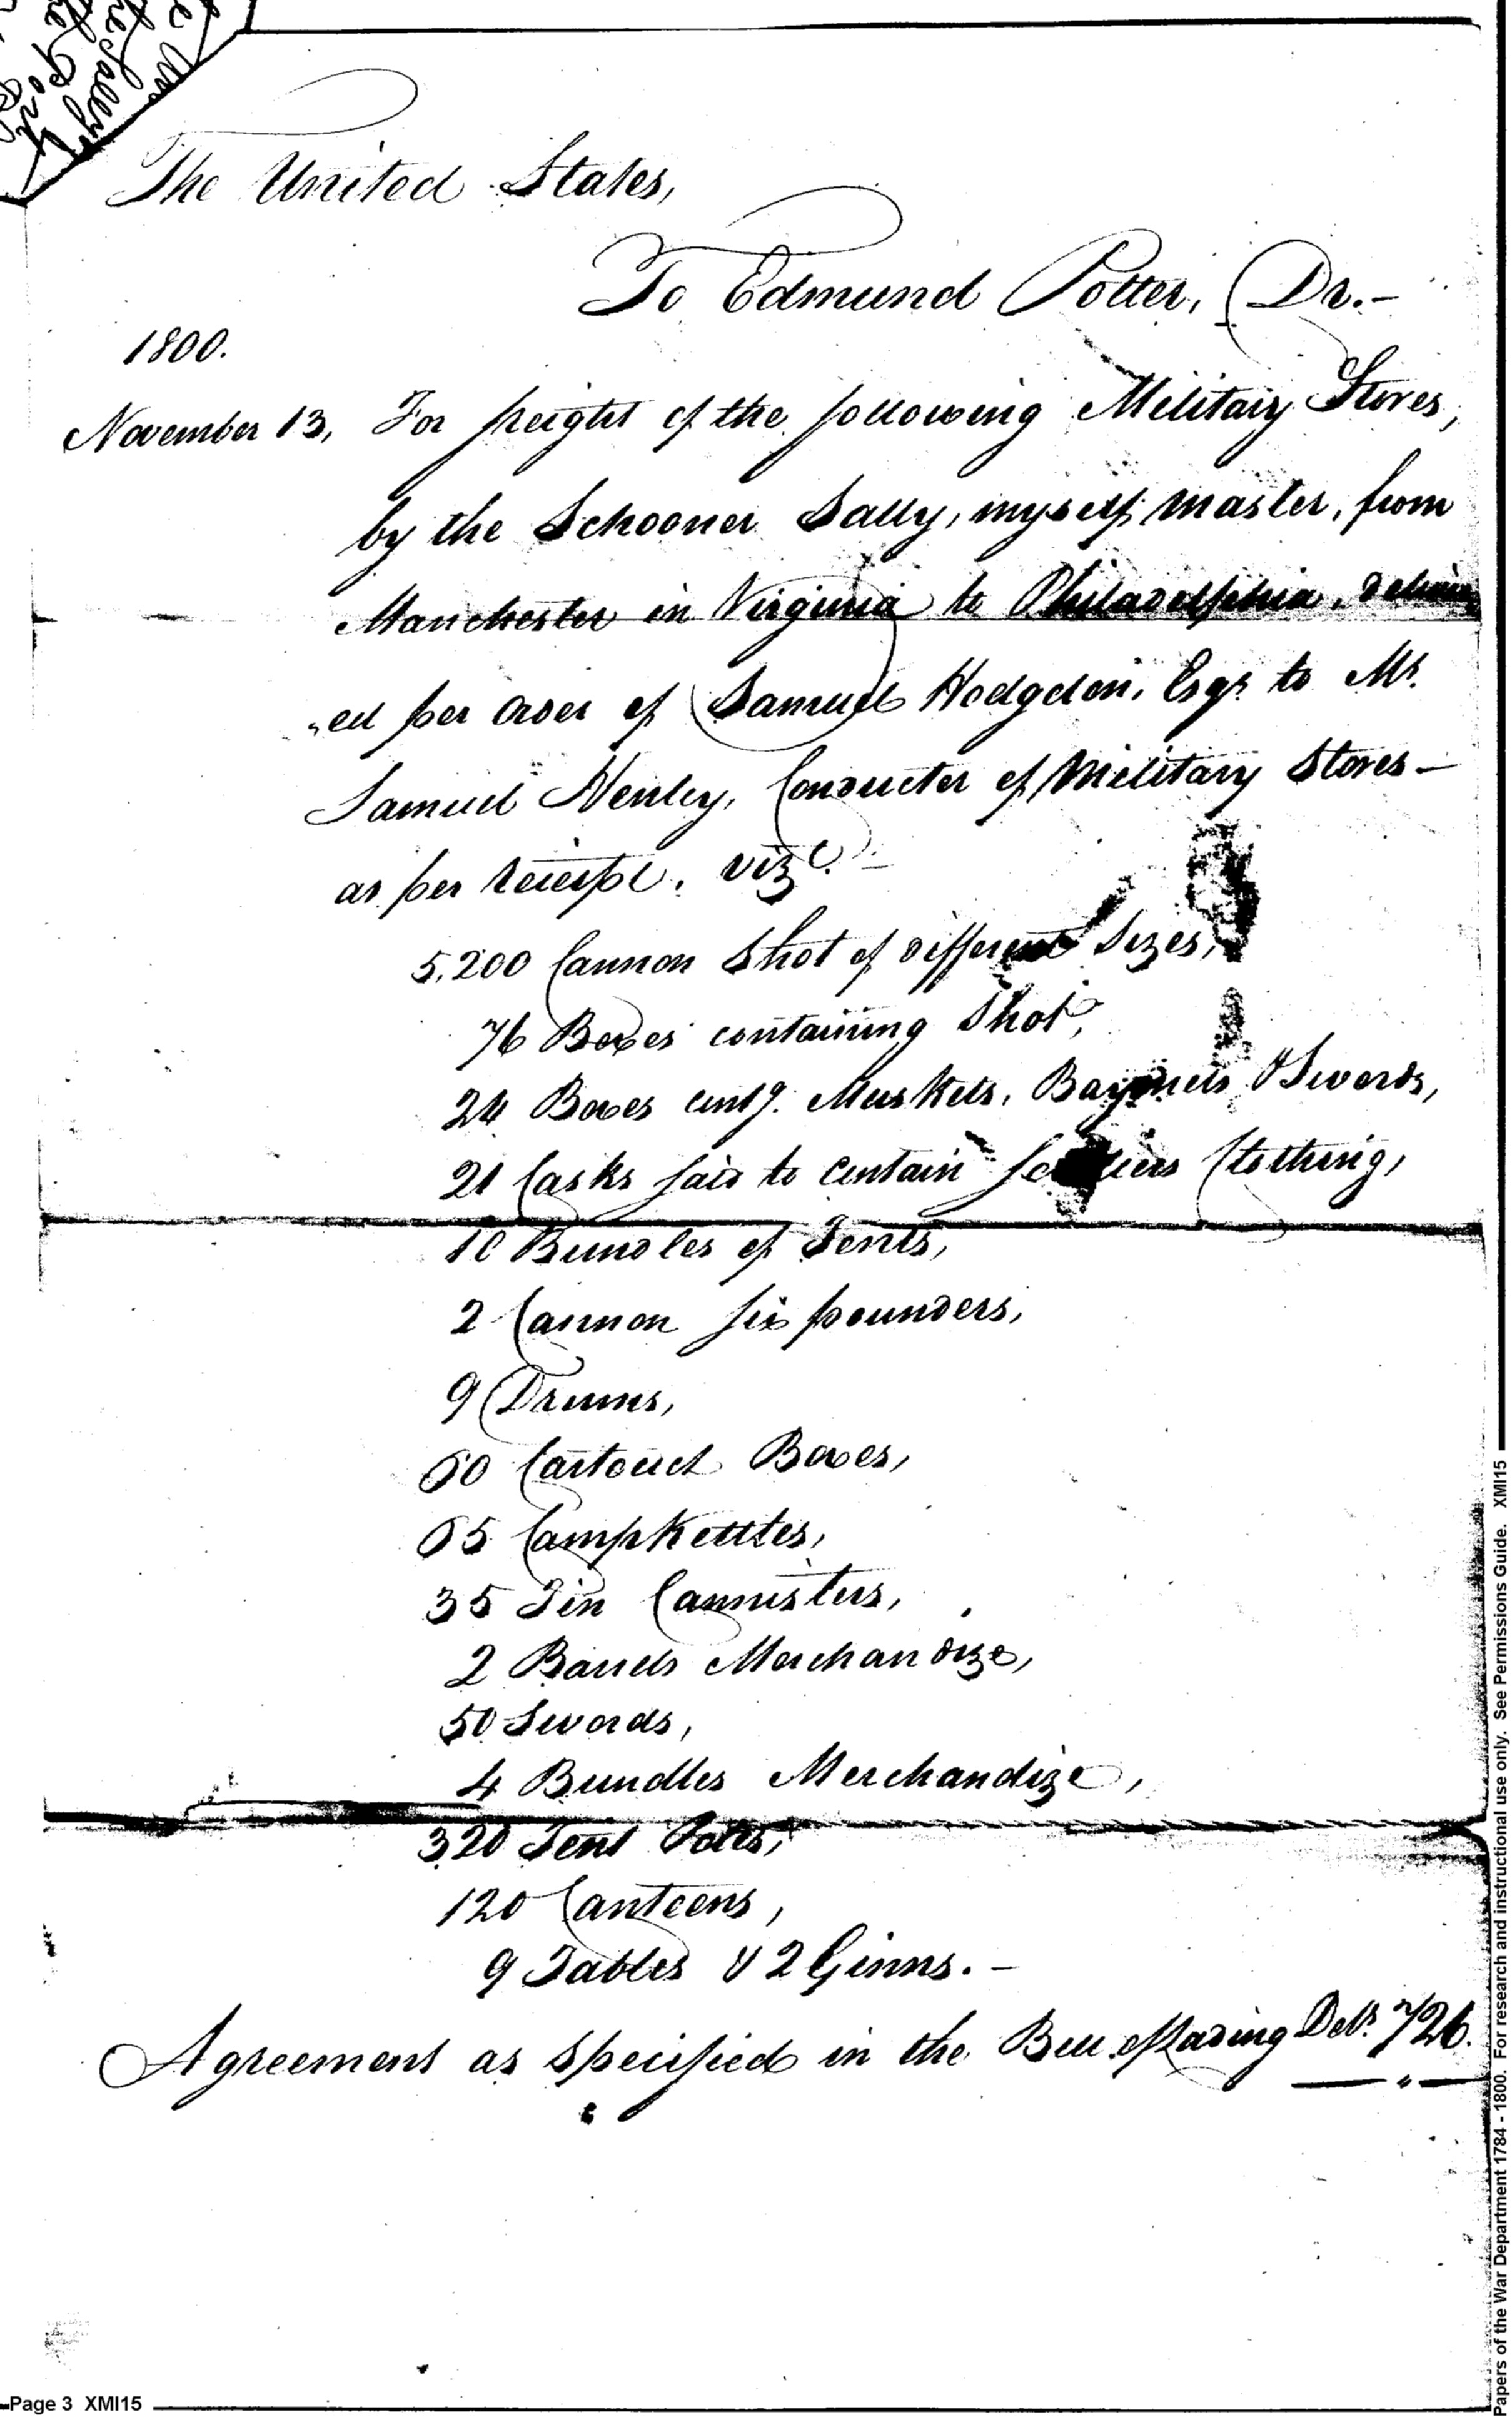 The United States,
To Edmund Potter, Dr.-
1800.
November 13, For freight of the following Military Stores,
by the Schooner Sally, myself master, from
Manchester in Virginia to Philadelphia, deliver
"ed per order of Samuel Hodgdon, Esqr. to Mr.
Samuel Henley, Conducter of Military Stores-
as per receipt. vizt.
5,200 Cannon Shot of different Sizes,
76 Boxes containing Shot,
24 Boxes contg. Muskets, Bayonets & Swords,
21 Casks said to contain soldiers Clothing,
10 Bundles of Tents,
2 Cannon six pounders,
9 Drums,
60 Cartouch Boxes,
65 Campkettles,
35 Tin Cannisters,
2 Barrels Merchandize,
50 Swords,
4 Bundles Merchandize,
320 Tent Poles,
120 Canteens,
9 Tables & 2 Ginns.-
Agreement as specified in the Bill of lading Dolls. 726.
Page 3 XMI15
Papers of the War Department 1784 - 1800. For research and instructional use only. See Permissions Guide. XMI15